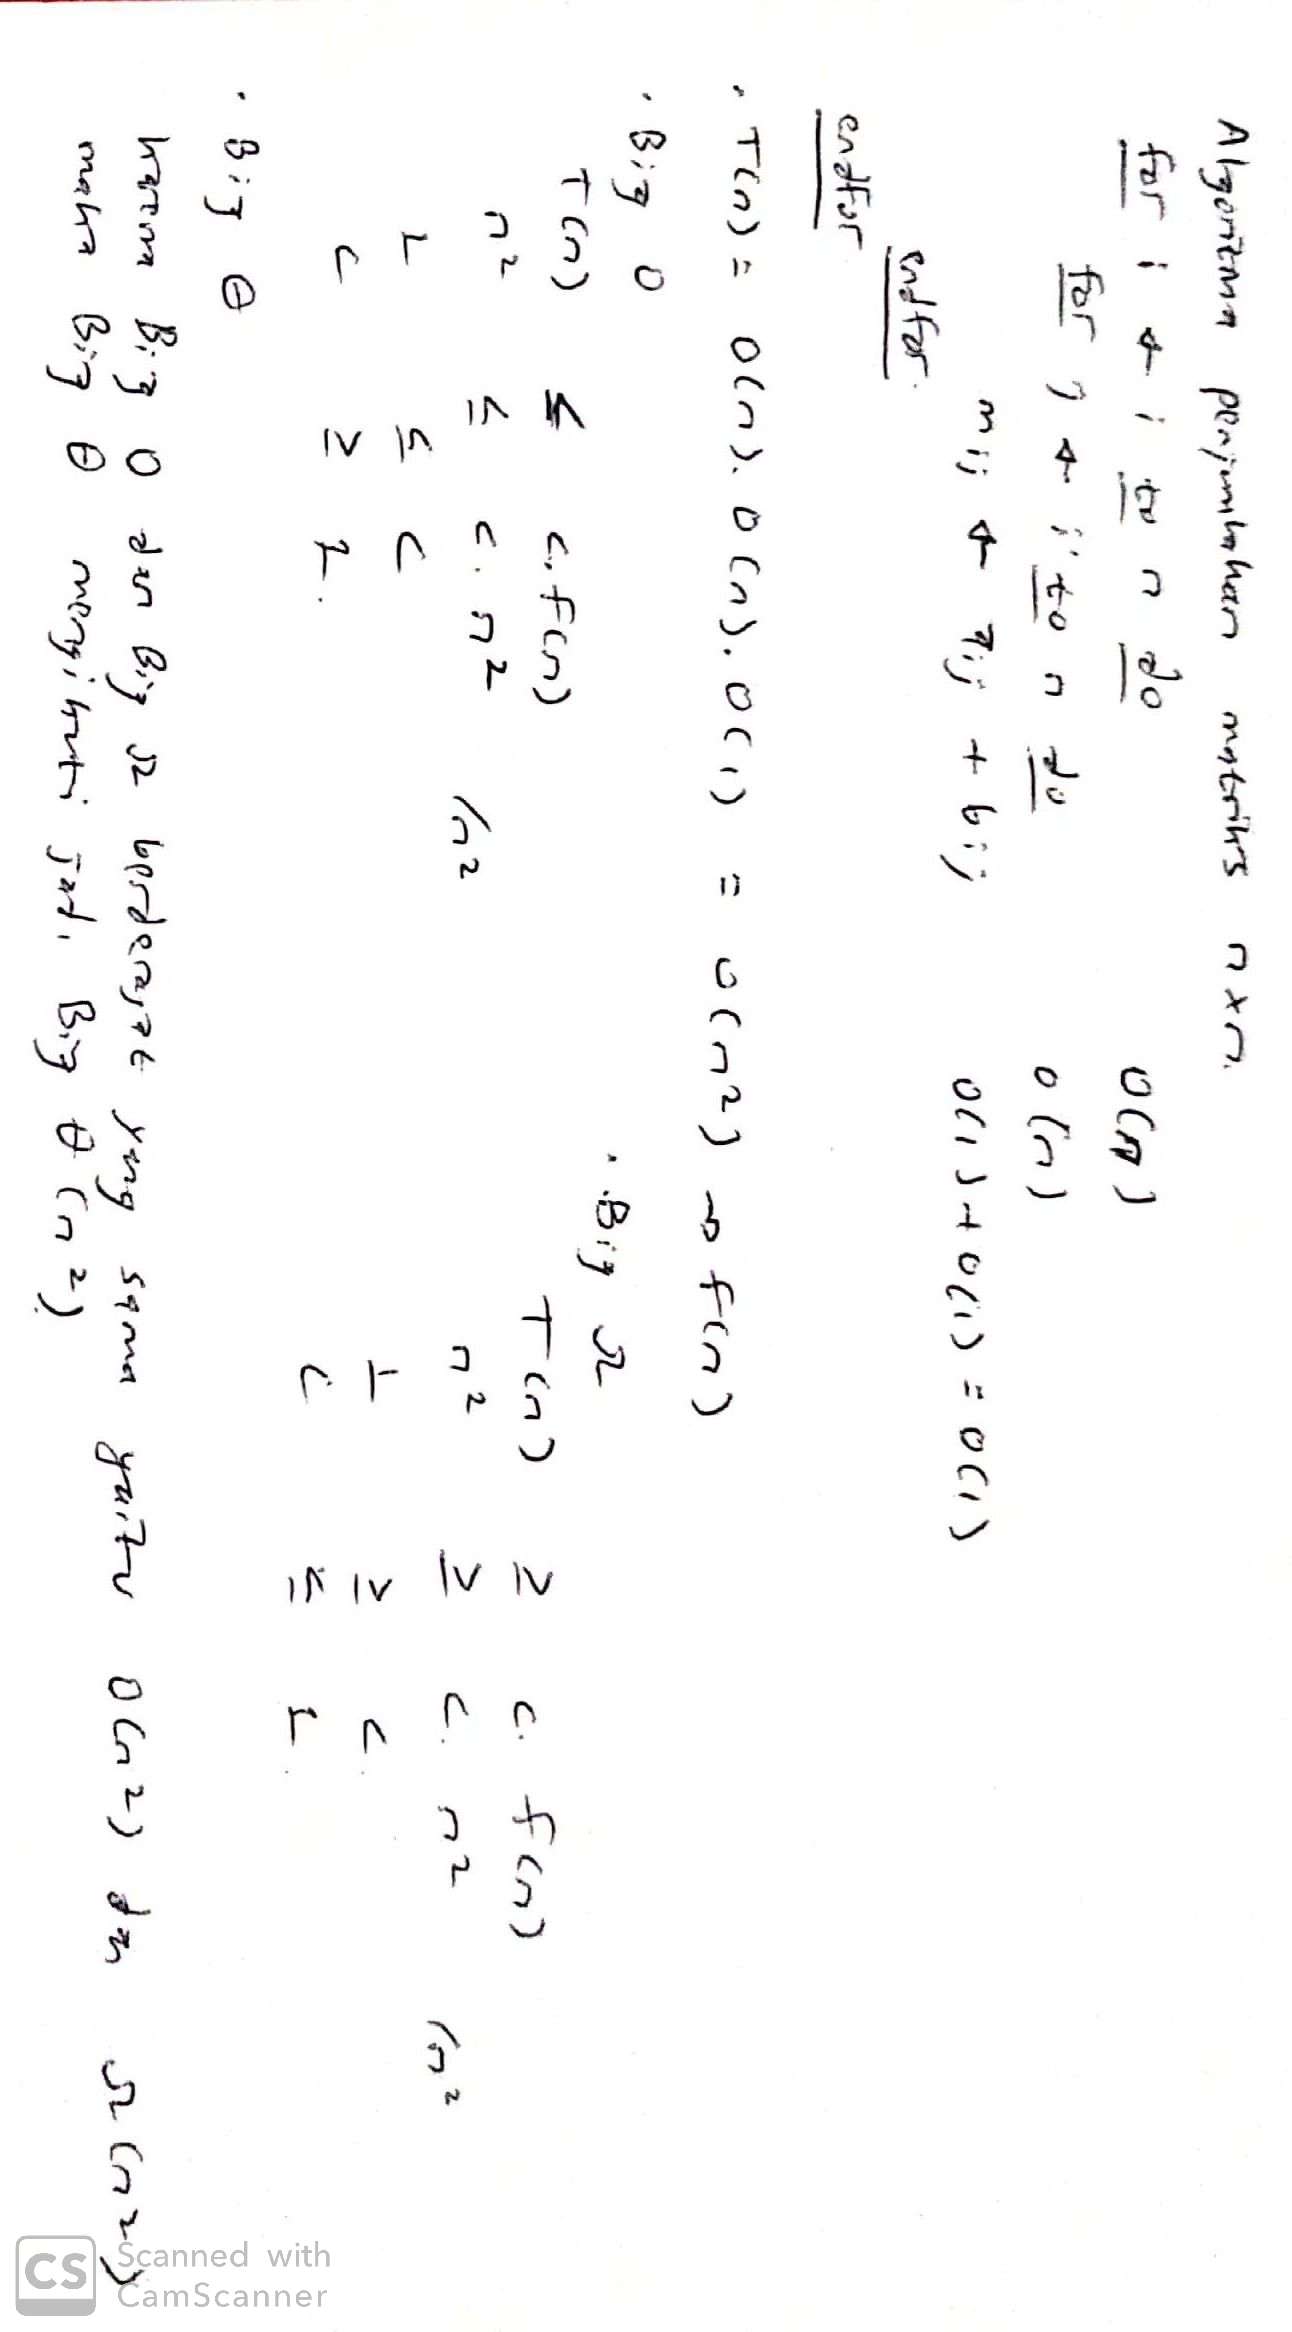 Algoritma penjumlahan matriks n x n.
for i ← i to n do O(n)
for j ← i to n do O(n)
mij ← aij + bij O(1) + O(1) = O(1)
endfor.
endfor
• T(n) = O(n). O(n). O(1) = O(n2) → f(n)
• Big O
T(n) ≤ c. f(n)
n² ≤ c. n² /n²
1 ≤ c
c ≥ 1.
• Big Ω
T(n) ≥ c. f(n)
n² ≥ c. n² /n²
1 ≥ c.
c ≤ 1.
• Big θ
karena Big O dan Big Ω berderajat yang sama yaitu O(n2) dan Ω(n2)
maka Big θ mengikuti jadi Big θ(n2).
CS Scanned with
CamScanner